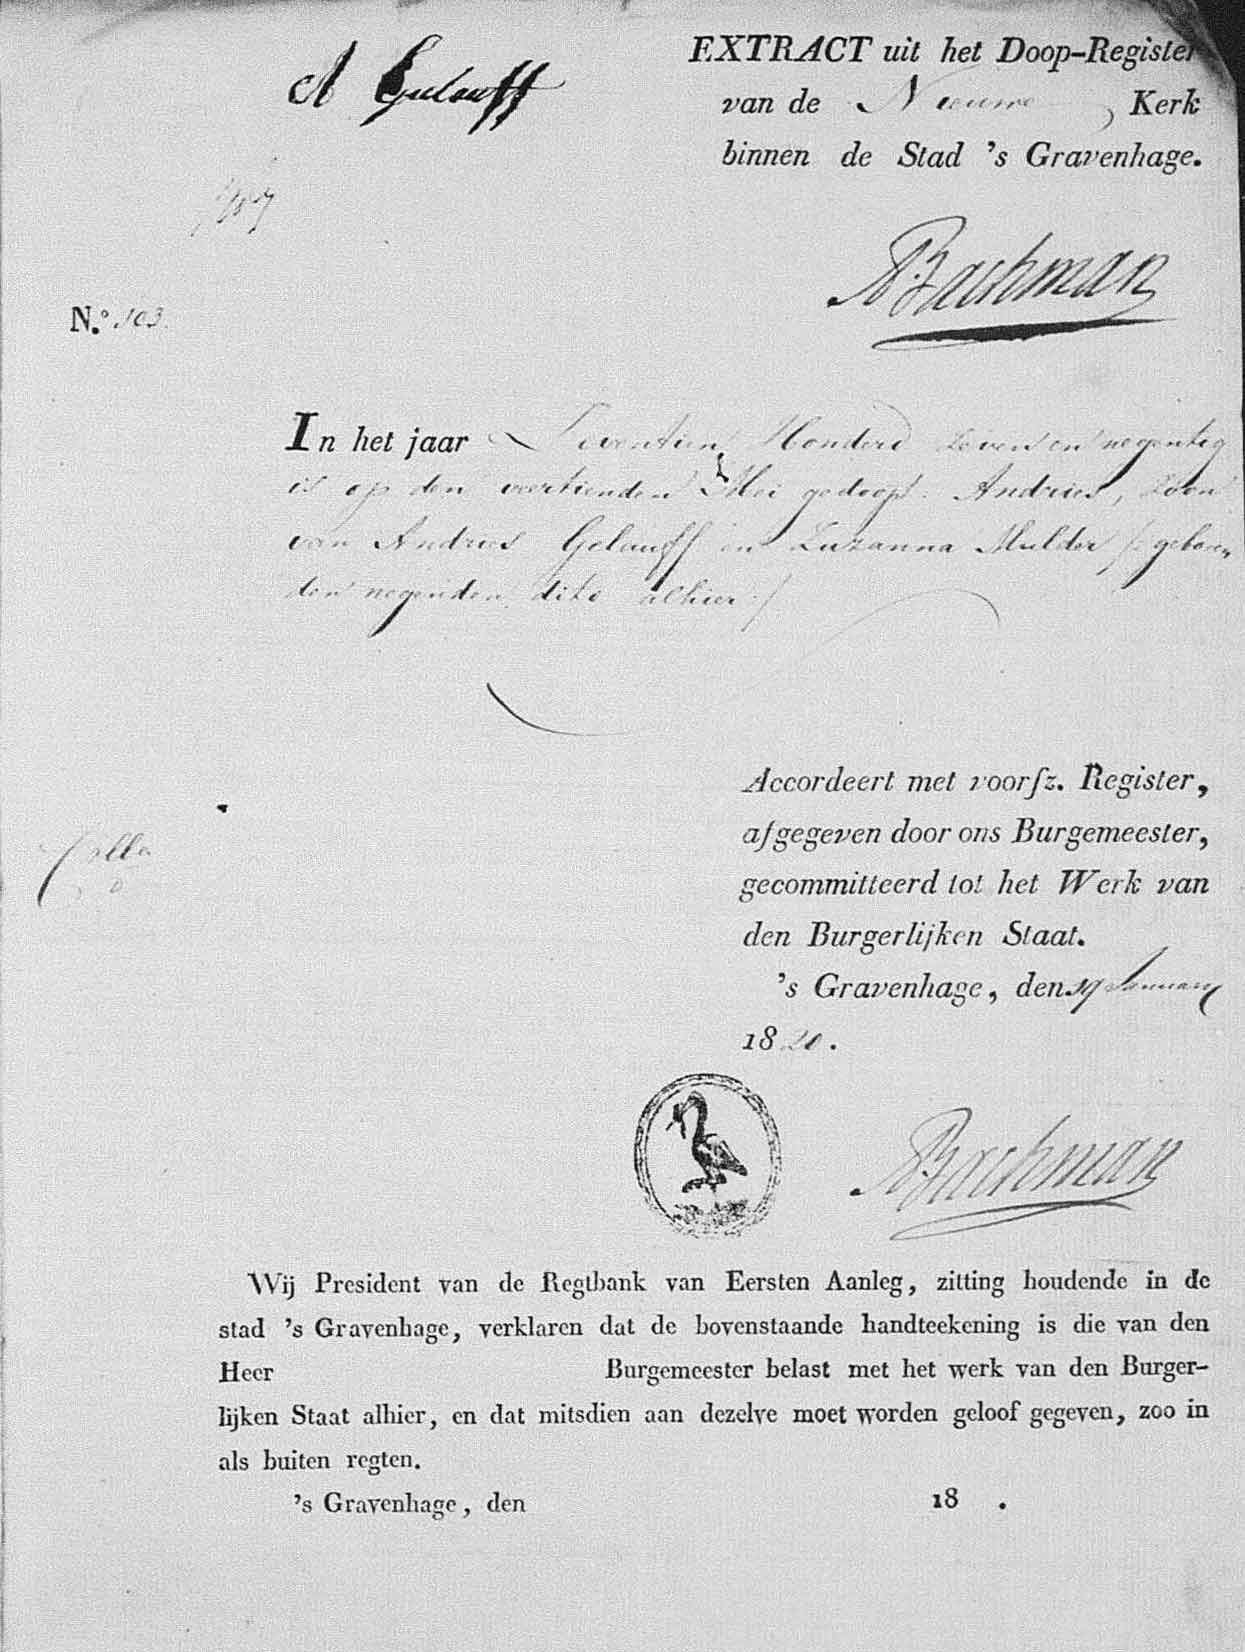 A Gelauff
EXTRACT uit het Doop-Register
van de Nieuwe Kerk
binnen de Stad 's Gravenhage.
Bachman
N.º 103.
In het jaar Seventien Honderd Zeven en negentig
is op den veertienden Mei gedoopt. Andries, Zoon
van Andries Gelauff en Zuzanna Mulder /: geboren
den negenden dito alhier :/
Accordeert met voorſz. Register,
afgegeven door ons Burgemeester,
gecommitteerd tot het Werk van
den Burgerlijken Staat.
's Gravenhage, den 19 Januarij
1820.
Bachman
Wij President van de Regtbank van Eersten Aanleg, zitting houdende in de
stad 's Gravenhage, verklaren dat de bovenstaande handteekening is die van den
Heer Burgemeester belast met het werk van den Burger-
lijken Staat alhier, en dat mitsdien aan dezelve moet worden geloof gegeven, zoo in
als buiten regten.
's Gravenhage, den 18 .